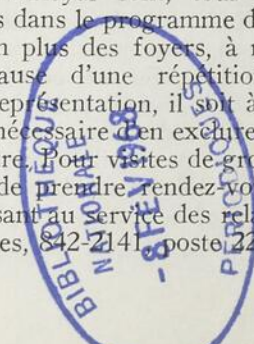 dans le programme d
plus des foyers, à
ause d'une répétitio
eprésentation, il soit à
nécessaire d'en exclure
re. Pour visites de gro
de prendre rendez-vo
sant au service des rela
es, 842-2141, poste 22
BIBLIOTÈQUE
NATIONALE
-8 FEV 1968
PERIODIQUES